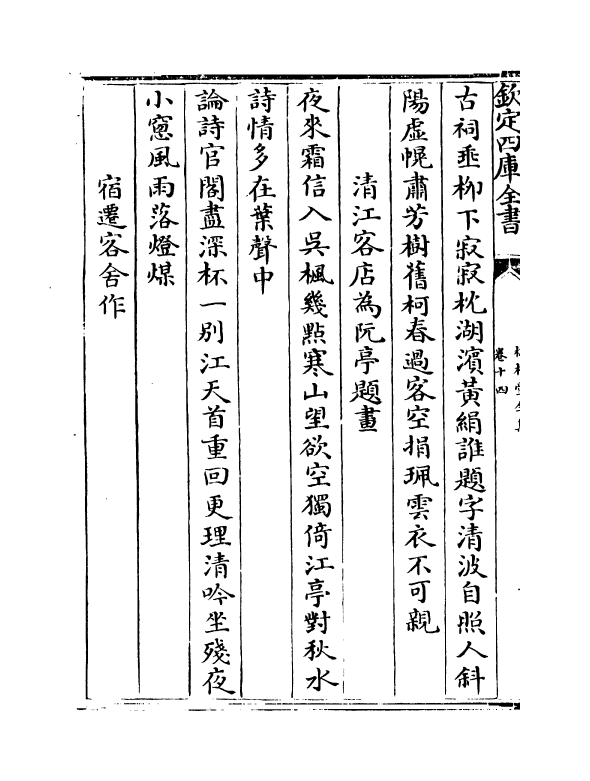 欽定四庫全書
卷十四
古祠垂柳下寂寂枕湖濱黃絹誰題字清波自照人斜
陽虛幌肅芳樹舊柯春過客空捐珮雲衣不可親
清江客店為阮亭題畫
夜來霜信入吳楓幾點寒山望欲空獨倚江亭對秋水
詩情多在葉聲中
論詩官閣盡深杯一別江天首重回更理清吟坐殘夜
小窻風雨落燈煤
宿遷客舍作